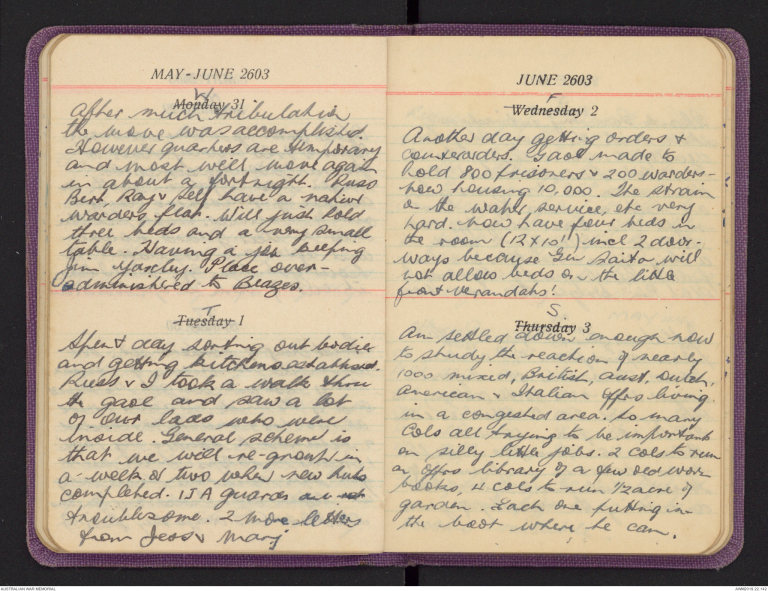 MAY-JUNE 2603
W
Monday 31
After much tribulation
the move was accomplished.
However quarters are temporary
and most will move again
in about a fortnight. Russ
Bert, Ray & self have a native
warders flat. Will just hold
three beds and a very small
table. Having a job keeping
Jim Yardley. Place over-
administered to Blazes.
T
Tuesday 1
Spent day sorting out bodies
and getting kitchens established.
Russ & I took a walk thru
the gaol and saw a lot
of our lads who were
inside. General scheme is
that we will re-group in
a week or two when new huts
completed. IJA guards are not
troublesome. 2 more letters
from Jess & Marj
JUNE 2603
F
Wednesday 2
Another day getting orders &
counterorders. Gaol made to
hold 800 prisoners & 200 warders -
now housing 10,000. The strain
on the water, service, etc very
hard. Now have four beds in
the room (12 x 10!) incl 2 door-
ways because Gen Saito will
not allow beds on the little
front verandahs!
S
Thursday 3
Am settled down enough now
to study the reaction of nearly
1000 mixed, British, Aust, Dutch,
American & Italian offrs living
in a congested area. So many
Cols all trying to be important
on silly little jobs. 2 Cols to run
an offrs library of a few old worn
books, 4 cols to run 1/2 acre of
garden. Each one putting in
the boot where he can.
AUSTRALIAN WAR MEMORIAL